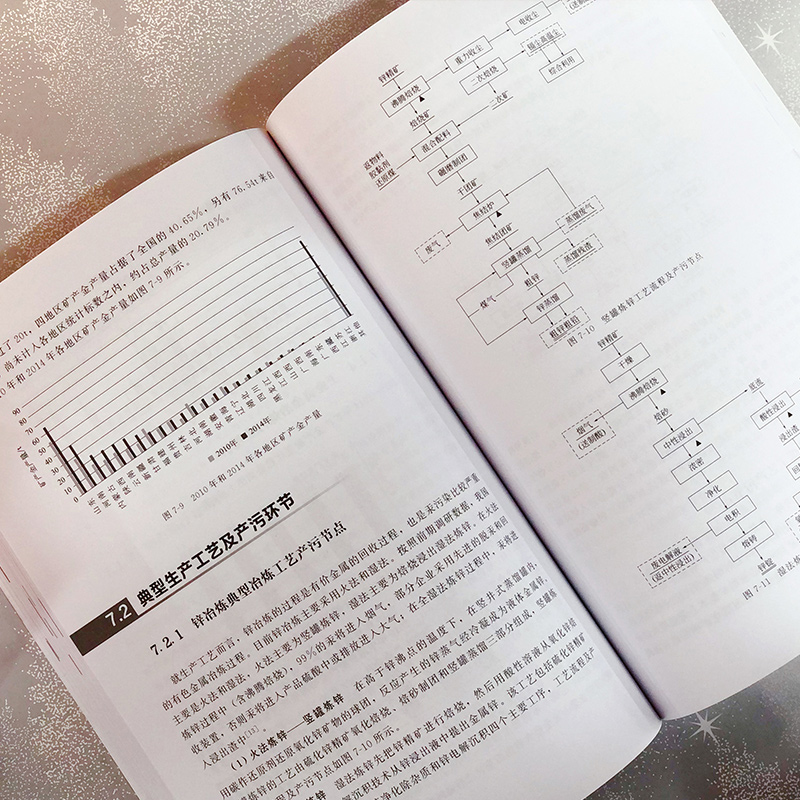 过了 20t，四地区矿产金产量占据了全国的 40.65%，另有 76.54t 来自
尚未计入各地区统计标数之内，约占总产量的 20.79%。
0 年和 2014 年各地区矿产金产量如图 7-9 所示。
矿产金产量/t
90
80
70
60
50
40
30
20
10
0
2010年 2014年
图 7-9 2010 年和 2014 年各地区矿产金产量
7.2 典型生产工艺及产污环节
7.2.1 锌冶炼典型冶炼工艺产污节点
就生产工艺而言，锌冶炼的过程是有价金属的回收过程，也是汞污染比较严重
的有色金属冶炼过程。目前锌冶炼主要采用火法和湿法。按照前期调研数据，我国
主要是火法和湿法，火法主要为竖罐炼锌，湿法主要为焙烧浸出湿法炼锌。在火法
炼锌过程中（含沸腾焙烧），99%的汞将进入烟气，部分企业采用先进的脱汞和回
收装置，否则汞将进入产品硫酸中或排放进入大气，在全湿法炼锌过程中，汞将进
入浸出渣中
(1) 火法炼锌——竖罐炼锌 在高于锌沸点的温度下，在竖井式蒸馏罐内，
用碳作还原剂还原氧化锌矿物的球团，反应产生的锌蒸气经冷凝成为液体金属锌。
炼锌的工艺由硫化锌精矿氧化焙烧、焙砂制团和竖罐蒸馏三部分组成，竖罐炼
及产污节点如图 7-10 所示。
炼锌 湿法炼锌先把锌精矿进行焙烧，然后用酸性溶液从氧化锌焙
沉积技术从锌浸出液中提出金属锌。该工艺包括硫化锌精矿
净化除杂质和锌电解沉积四个主要工序，工艺流程及产
锌精矿
沸腾焙烧
重力收尘
电收尘
(送制酸)
二次焙烧
综合利用
焙烧矿
二次矿
返物料
胶黏剂
还原煤
混合配料
碾磨制团
干团矿
焦结炉
废气
焦结团矿
蒸馏废气
竖罐蒸馏
蒸馏残渣
煤气
粗锌
锌蒸馏
粗锌粗铅
图 7-10 竖罐炼锌工艺流程及产污节点
锌精矿
干燥
沸腾焙烧
烟气
(送制酸)
焙砂
中性浸出
底流
酸性浸出
浸出渣
浓密
净化
电积
废电解液
(返中性浸出)
熔铸
锌锭
图 7-11 湿法炼